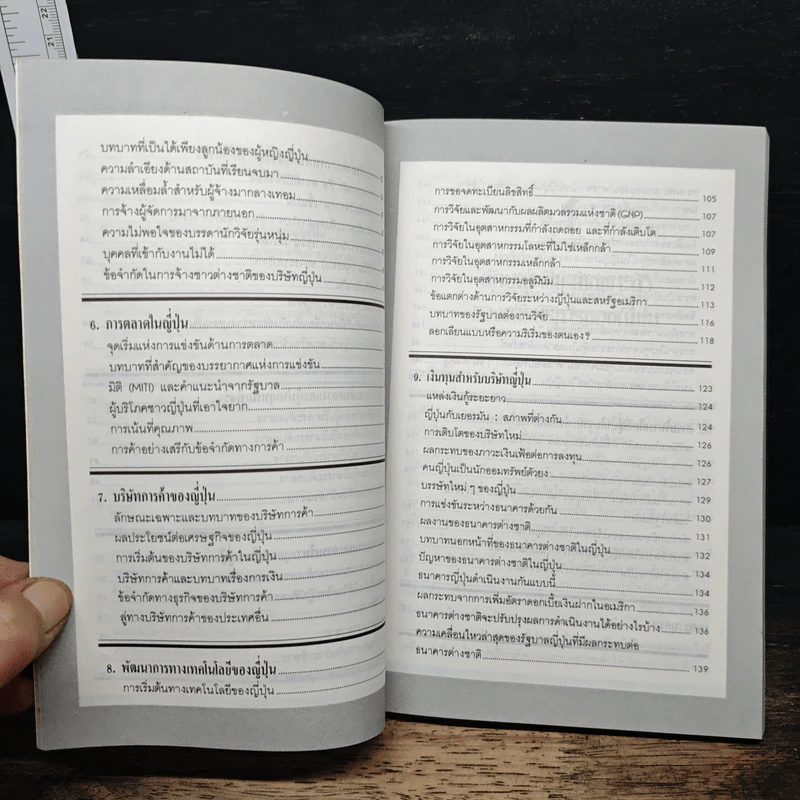 บทบาทที่เป็นได้เพียงลูกน้องของผู้หญิงญี่ปุ่น
ความลำเอียงด้านสถาบันที่เรียนจบมา
ความเหลื่อมล้ำสำหรับผู้จ้างมากลางเทอม
การจ้างผู้จัดการมาจากภายนอก
ความไม่พอใจของบรรดานักวิจัยรุ่นหนุ่ม
บุคคลที่เข้ากับงานไม่ได้
ข้อจำกัดในการจ้างชาวต่างชาติของบริษัทญี่ปุ่น
6. การตลาดในญี่ปุ่น
จุดเริ่มแห่งการแข่งขันด้านการตลาด
บทบาทที่สำคัญของบรรยากาศแห่งการแข่งขัน
มิติ (MITI) และคำแนะนำจากรัฐบาล
ผู้บริโภคชาวญี่ปุ่นที่เอาใจยาก
การเน้นที่คุณภาพ
การค้าอย่างเสรีกับข้อจำกัดทางการค้า
7. บริษัทการค้าของญี่ปุ่น
ลักษณะเฉพาะและบทบาทของบริษัทการค้า
ผลประโยชน์ต่อเศรษฐกิจของญี่ปุ่น
การเริ่มต้นของบริษัทการค้าในญี่ปุ่น
บริษัทการค้าและบทบาทเรื่องการเงิน
ข้อจำกัดทางธุรกิจของบริษัทการค้า
ลู่ทางบริษัทการค้าของประเทศอื่น
8. พัฒนาการทางเทคโนโลยีของญี่ปุ่น
การเริ่มต้นทางเทคโนโลยีของญี่ปุ่น
การขอจดทะเบียนลิขสิทธิ์ 105
การวิจัยและพัฒนากับผลผลิตมวลรวมแห่งชาติ (GNP) 107
การวิจัยในอุตสาหกรรมที่กำลังถดถอย และที่กำลังเติบโต 107
การวิจัยในอุตสาหกรรมโลหะที่ไม่ใช่เหล็กกล้า 109
การวิจัยในอุตสาหกรรมเหล็กกล้า 111
การวิจัยในอุตสาหกรรมอลูมินัม 112
ข้อแตกต่างด้านการวิจัยระหว่างญี่ปุ่นและสหรัฐอเมริกา 113
บทบาทของรัฐบาลต่องานวิจัย 116
ลอกเลียนแบบหรือความริเริ่มของตนเอง ? 118
9. เงินทุนสำหรับบริษัทญี่ปุ่น 123
แหล่งเงินกู้ระยะยาว 124
ญี่ปุ่นกับเยอรมัน : สภาพที่ต่างกัน 124
การเติบโตของบริษัทใหม่ 126
ผลกระทบของภาวะเงินเฟ้อต่อการลงทุน 126
คนญี่ปุ่นเป็นนักออมทรัพย์ตัวยง 127
บรรษัทใหม่ ๆ ของญี่ปุ่น 129
การแข่งขันระหว่างธนาคารด้วยกัน 130
ผลงานของธนาคารต่างชาติ 131
บทบาทนอกหน้าที่ของธนาคารต่างชาติในญี่ปุ่น 132
ปัญหาของธนาคารต่างชาติในญี่ปุ่น 134
ธนาคารญี่ปุ่นดำเนินงานกันแบบนี้ 134
ผลกระทบจากการเพิ่มอัตราดอกเบี้ยเงินฝากในอเมริกา 136
ธนาคารต่างชาติจะปรับปรุงผลการดำเนินงานได้อย่างไรบ้าง 136
ความเคลื่อนไหวล่าสุดของรัฐบาลญี่ปุ่นที่มีผลกระทบต่อ
ธนาคารต่างชาติ 139
21
22